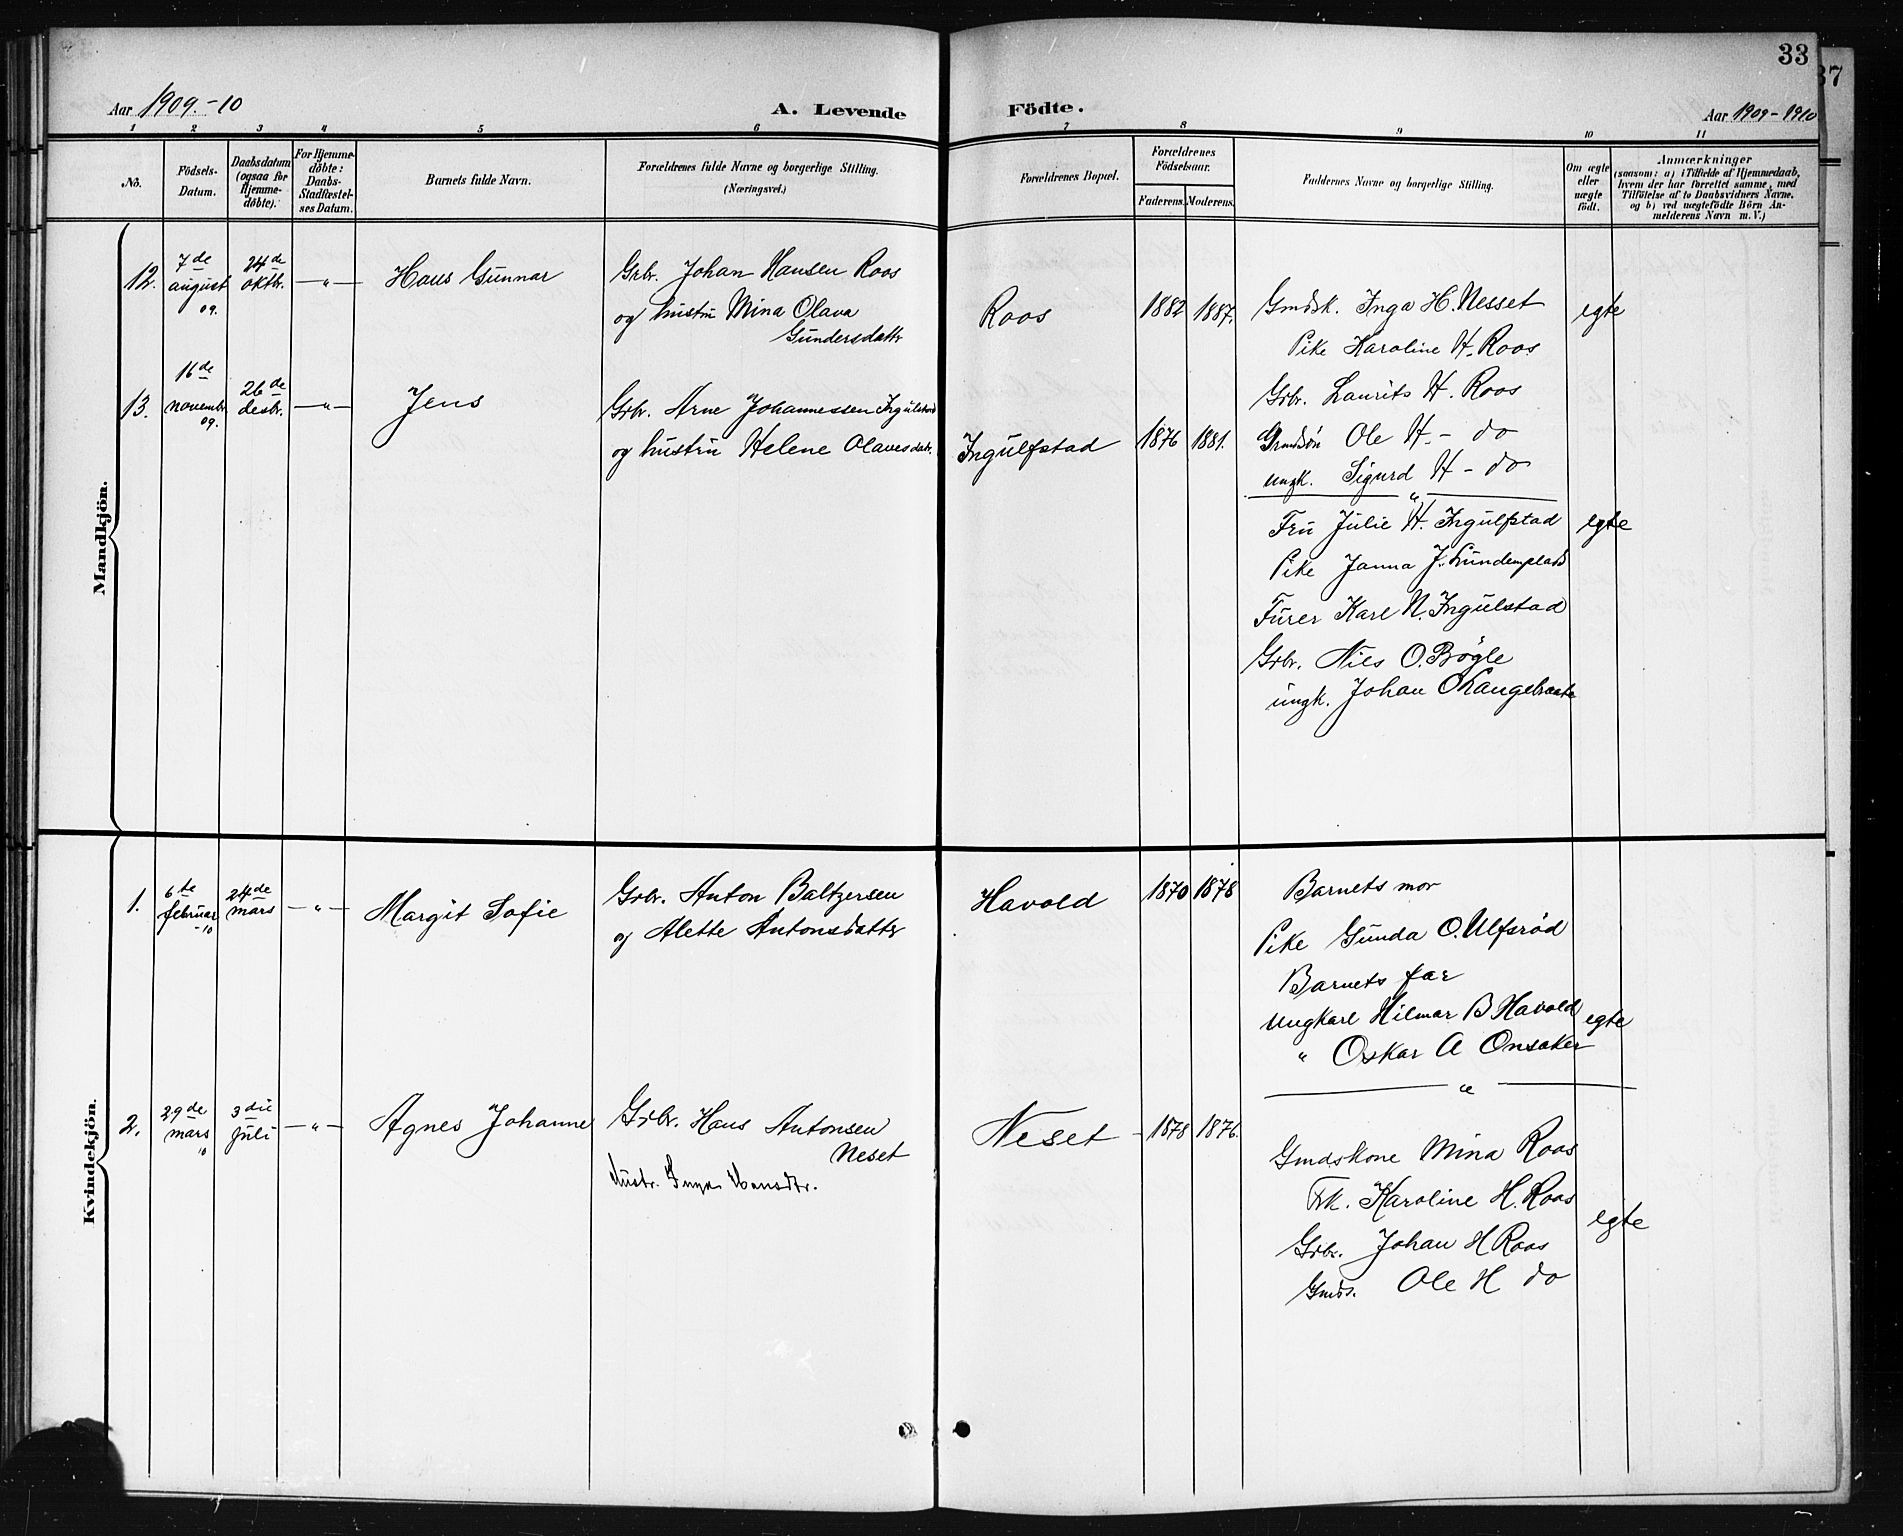 33
37
Aar 1909.-10
A. Levende
Födte.
Aar 1909-1910
1 2 3 4 5 6 7 8 9 10 11
No.
Födsels-
Datum.
Daabsdatum
(ogsaa for
Hjemme-
döbte).
For Hjemme-
döbte:
Daabs-
Stadfæstel-
ses Datum.
Barnets fulde Navn.
Forældrenes fulde Navne og borgerlige Stilling.
(Næringsvei.)
Forældrenes Bopæl.
Forældrenes
Födselsaar.
Faderens. Moderens.
Faddernes Navne og borgerlige Stilling.
Om ægte
eller
uægte
födt.
Anmærkninger
(saasom: a) i Tilfælde af Hjemmedaab,
hvem der har forrettet samme, med
Tilföielse af to Daabsvidners Navne.
og b) ved uægtefödte Börn An-
melderens Navn m. V.)
Mandkjön.
12.
7de
august
09.
24de
oktbr.
—"—
Hans Gunnar
Grbr. Johan Hansen Roos
og hustru Mina Olava
Gundersdattr
Roos
1882 1887.
Gmdsk. Inga H. Nesset
Pike Karoline H. Roos
Grbr. Laurits H. Roos
Grmdsön Ole H. - do
ungk. Sigurd H - do
egte
13.
16de
novembr
09.
26de
desbr.
—"—
Jens
Grbr. Arne Johannessen Ingulstad
og hustru Helene Olavesdatr.
Ingulfstad
1876 1881.
—"—
Fru Julie H. Ingulfstad
Pike Janna J. Lundemplads
Furer Karl N. Ingulstad
Grbr. Nils O. Bögle
ungk. Johan O Langebraate
egte
Kvindekjön.
1.
6te
februar
-10
24de
mars
—"—
Margit Sofie
Grbr. Anton Baltzersen
og Alette Antonsdatter
Havold
1870 1878
Barnets mor
Pike Gunda O. Ulfsröd
Barnets far
Ungkarl Hilmar B Havold
" Oskar A Onsaker
egte
—"—
2.
29de
mars
10
3die
juli
—"—
Agnes Johanne
Grbr. Hans Antonsen
Neset
Hustr. Inga Hansdtr.
Neset
1878 1876.
Gmdskone Mina Roos
Frk. Karoline H. Roos
Grbr. Johan H Roos
Gmds. Ole H do
egte